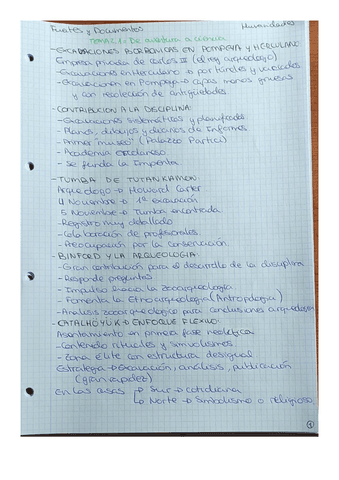 Fuentes y Documentos Humanidades
TEMA 2.1: De aventura a ciencia
-EXCAVACIONES BORBONICAS EN POMPEYA Y HERCULANO
Empresa privada de Carlos III (el rey arqueologo)
-Excavaciones en Herculano → por túneles y
-Excavaciones en Pompeya → capas menos gruesas
y con recolección de antigüedades.
-CONTRIBUCION A LA DISCIPLINA:
-Excavaciones sistemáticas y planificadas
-Planos, dibujos y diarios de Informes
-Primer "museo" (Palazzo Portici)
-Academia
-Se funda la Imprenta
-TUMBA DE TUTANKAMON:
Arqueologo → Howard Carter
4 Noviembre → 1ª excavación
5 Noviembre → Tumba encontrada
-Registro muy detallado
-Colaboración de profesionales
-Preocupación por la conservación
-BINFORD Y LA ARQUEOLOGIA:
-Gran contribución para el desarrollo de la disciplina
-Responde preguntas
-Impulso hacia la zooarqueologia
-Fomenta la Etnoarqueologia (Antropologia)
-Analisis zooarqueologico para conclusiones arqueologicas
-CATALHÖYÜK → ENFOQUE FLEXIVO:
Asentamiento en primera fase neolitica
-Contenido rituales y simbolismos
-Zona Elite con estructura desigual
Estrategia → Excavación, análisis, publicación
(gran rapidez)
En las casas → Sur → cotidiana
→ Norte → Simbolismo o religioso
1